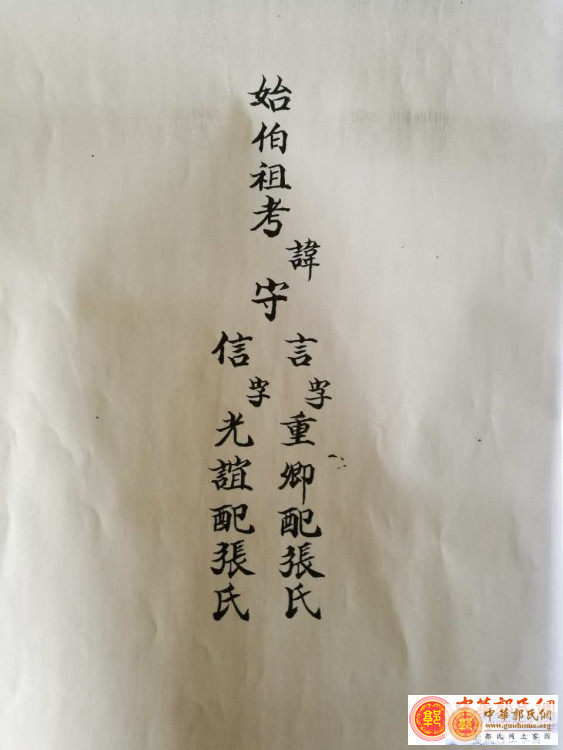 始伯祖考
諱
守
言字重卿配張氏
信字光誼配張氏
中華郭氏網
中華郭氏網
www.guohome.org
郭氏网上家园